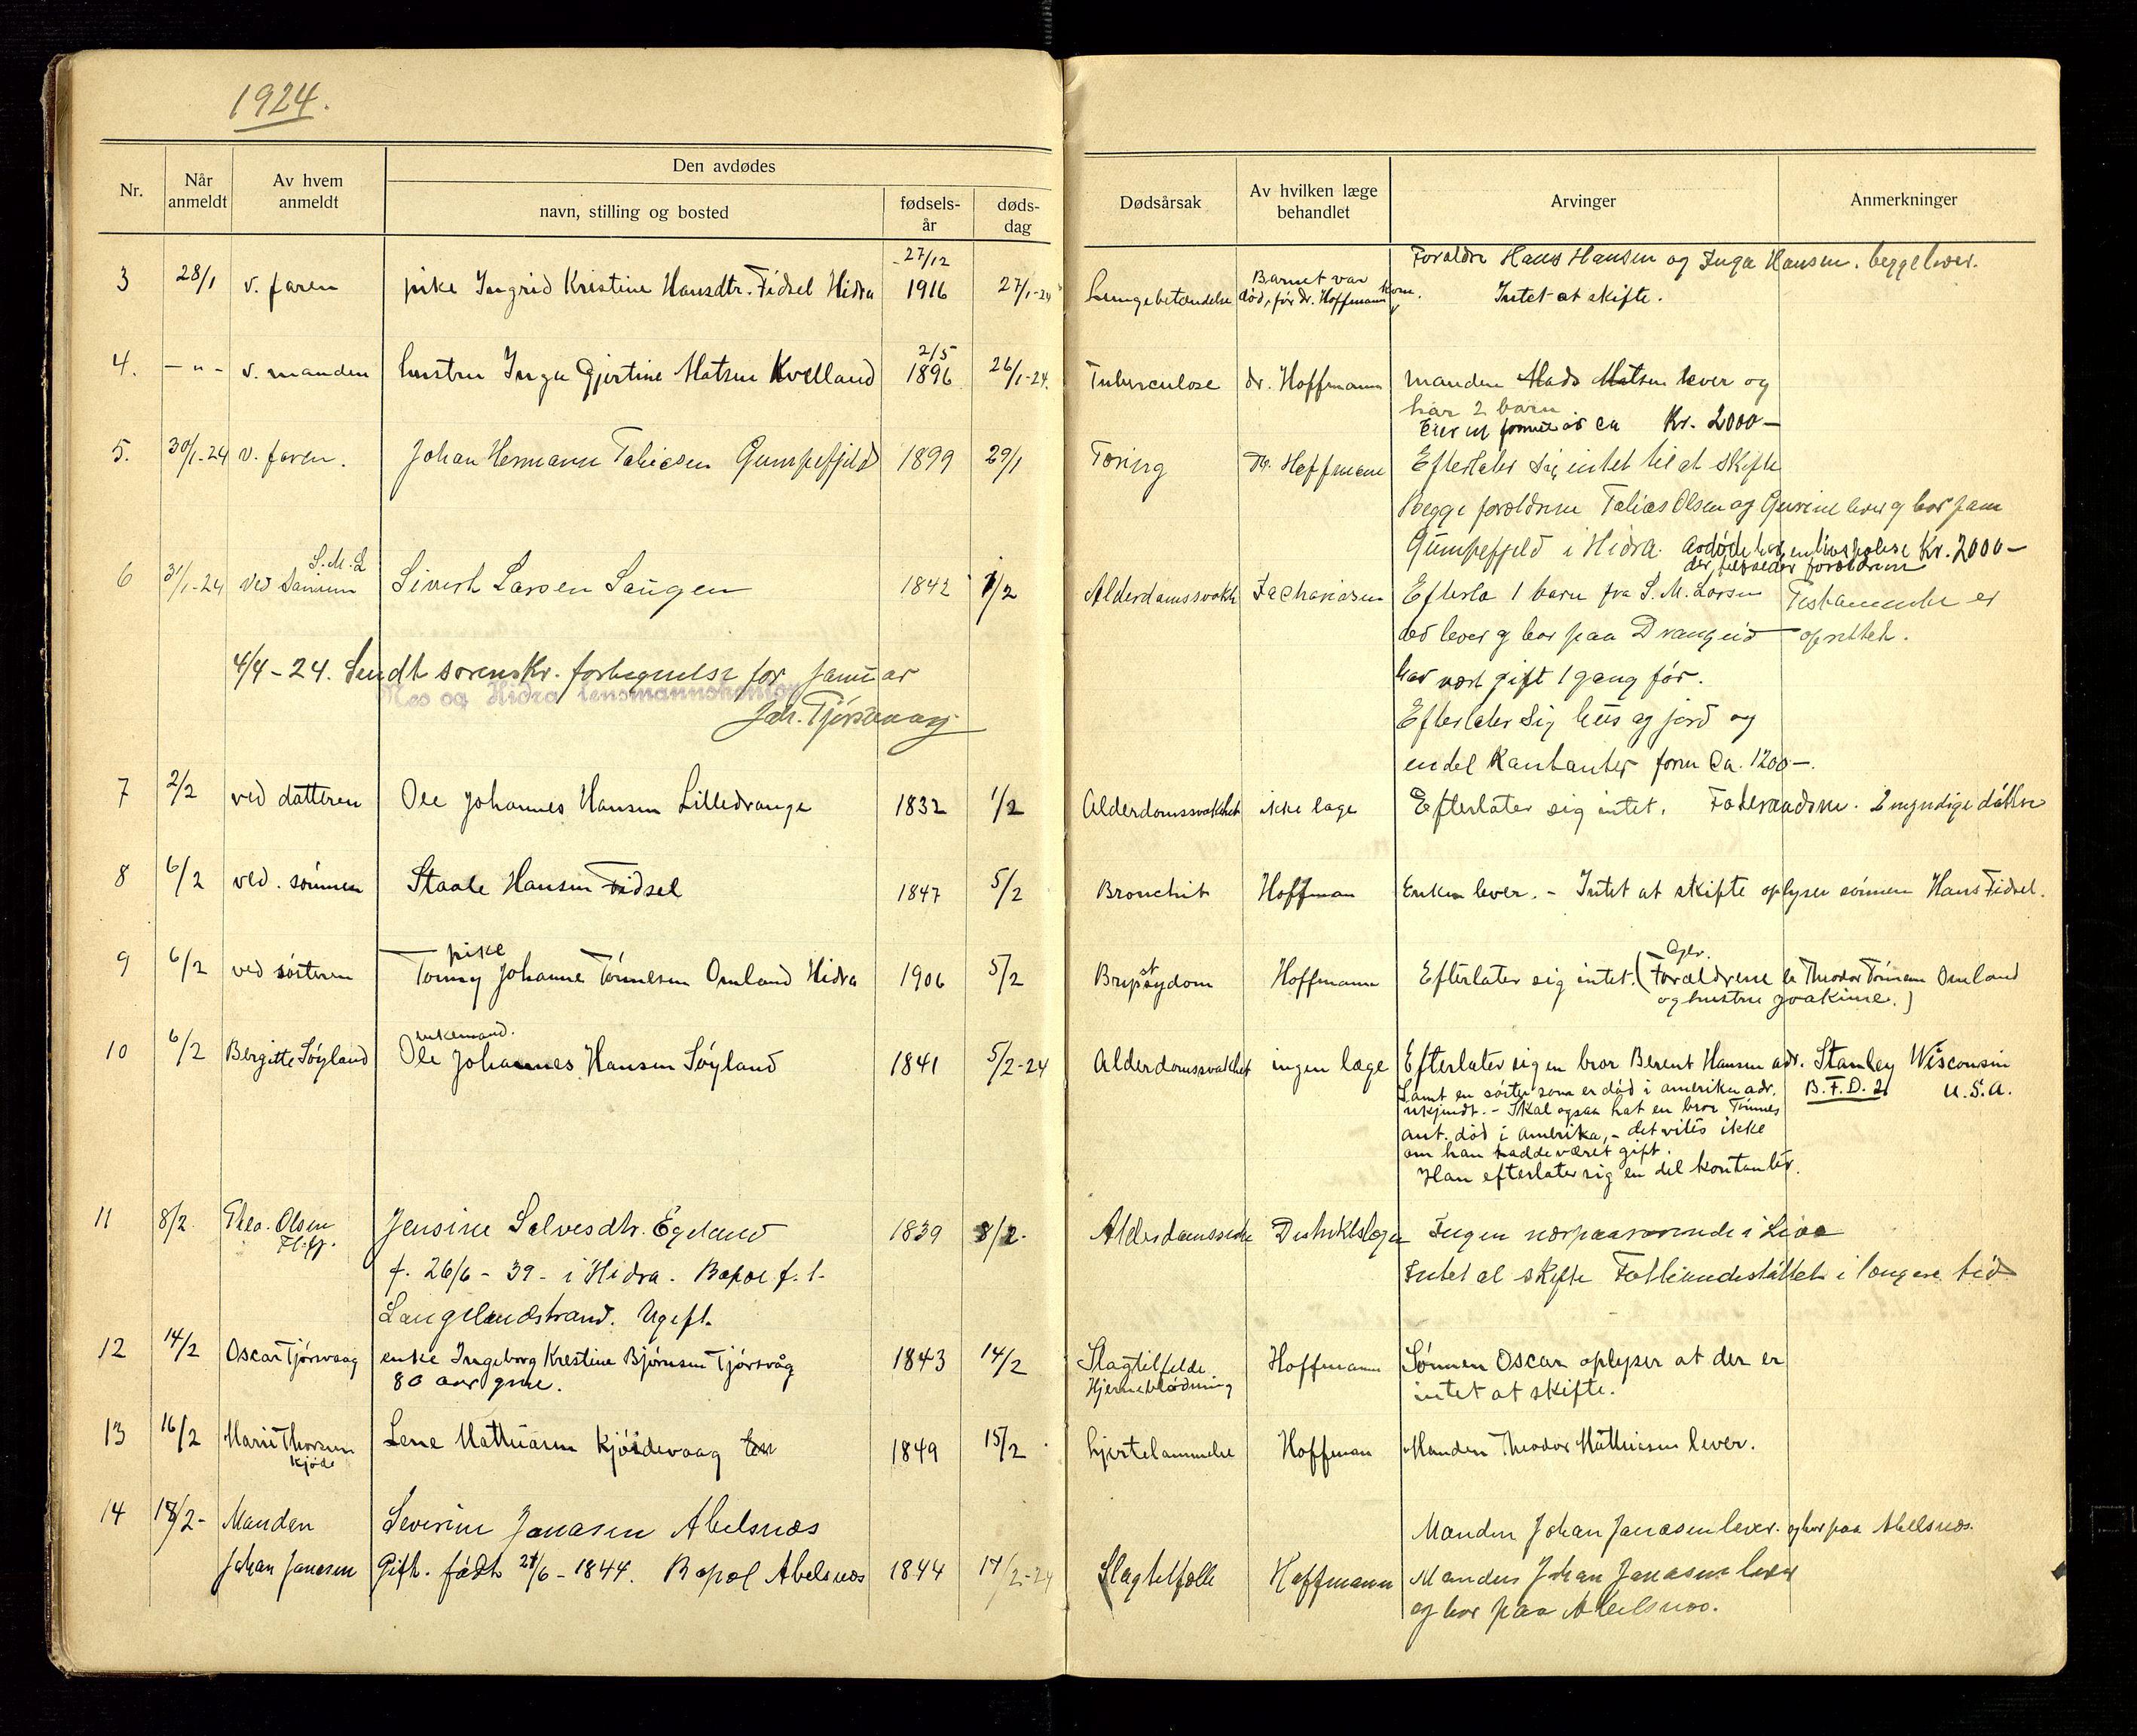 1924.
Nr.
Når anmeldt
Av hvem anmeldt
Den avdødes
navn, stilling og bosted
fødsels-år
døds-dag
Dødsårsak
Av hvilken læge behandlet
Arvinger
Anmerkninger
3 28/1 v. faren pike Ingrid Kristine Hansdtr. Fidsel Hidra 27/12 1916 27/1-24 Lungebetændelse Barnet var død, før dr. Hoffmann kom. Foraldre Hans Hansen og Inga Hansen. begge lever.
Intet at skifte.
4. -"- v. manden hustru Inga Gjertine Matsen Kvelland 2/5 1896 26/1-24. Tuberculose dr. Hoffmann manden Mads Matsen lever og
har 2 barn
Eier en formue av ca Kr. 2000-
5. 30/1-24 v. faren. Johan Hermann Tobiesen Gumpefjeld 1899 29/1 Tæring Dr. Hoffmann Efterlater sig intet til at skifte
Begge forældrene Tobias Olsen og Gurine lever og bor paa
Gumpefjeld i Hidra. avdøde har en livspolise Kr. 2000-
der tilfalder forældrene
6 31/1-24 ved Sønnen S.M.L Sivert Larsen Haugen 1842 1/2 Alderdomssvakh Zachariasen Efterla 1 barn fra S. M. Larsen Testamente er
ded lever og bor paa Drangeid oprettet.
har vært gift 1 gang før.
4/4-24. Sendt sorenskr. fortegnelse for januar
Nes og Hidra lensmannskontor
Joh. Tjørsvaag
Efterlater sig hus og jord og
endel Kontanter form ca. 1200-.
7 2/2 ved datteren Ole Johannes Hansen Lilledrange 1832 1/2 Alderdomssvakhet ikke læge Efterlater sig intet. 2 myndige døttre
8 6/2 ved. sønnen Staale Hansen Fidsel 1847 5/2 Bronchit Hoffman Enken lever. - Intet at skifte oplyser sønnen Hans Fidsel.
9 6/2 ved søsteren pike Tonny Johanne Tønnesen Omland Hidra 1906 5/2 Brystsydom Hoffmann Efterlater sig intet. (Forældrene Theodor Tønnesen Omland
og hustru Joakime.)
10 6/2 Bergitte Søyland enkemand. Ole Johannes Hansen Søyland 1841 5/2-24 Alderdomssvakhet ingen læge Efterlater sig en bror Berent Hansen adr. Stanley Wisconsin
B.F.D. 2 U.S.A.
Samt en søster som er død i amerika adr.
ukjendt. - Skal ogsaa hat en bror Tønnes
ant. død i amerika, - det vites ikke
om han hadde været gift.
Han efterlater sig en del kontanter.
11 8/2. Theo. Olsen Jensine Salvesdtr. Egeland 1839 8/2. Districtslægen Ingen nærpaarørende i Live
f. 26/6 - 39 - i Hidra. Bopæl f. t. Intet at skifte Fattigunderstøttet i længere tid
Langelandstrand. Ugift.
12 14/2 Oscar Tjørsvaag enke Ingeborg Krestine Bjørnsen Tjørsvåg 1843 14/2 Slagtilfelde Hoffmann Sønnen Oscar oplyser at der er
80 aar gml. Hjerneblødning intet at skifte.
13 16/2 Marie Thorsen Kjøde Lene Mathiasen Kjøidevaag 1849 15/2. hjertelammelse Hoffman Manden Theodor Mathiasen lever.
14 18/2- Manden Severine Jonasen Abelsnæs Manden Johan Jonasen lever. og bor paa Abelsnæs.
Johan Jonasen Gift. født 21/6-1844. Bopæl Abelsnæs 1844 17/2-24 Slagtilfælle Hoffmann Manden Johan Jonasen lever
og bor paa Abelsnæs.